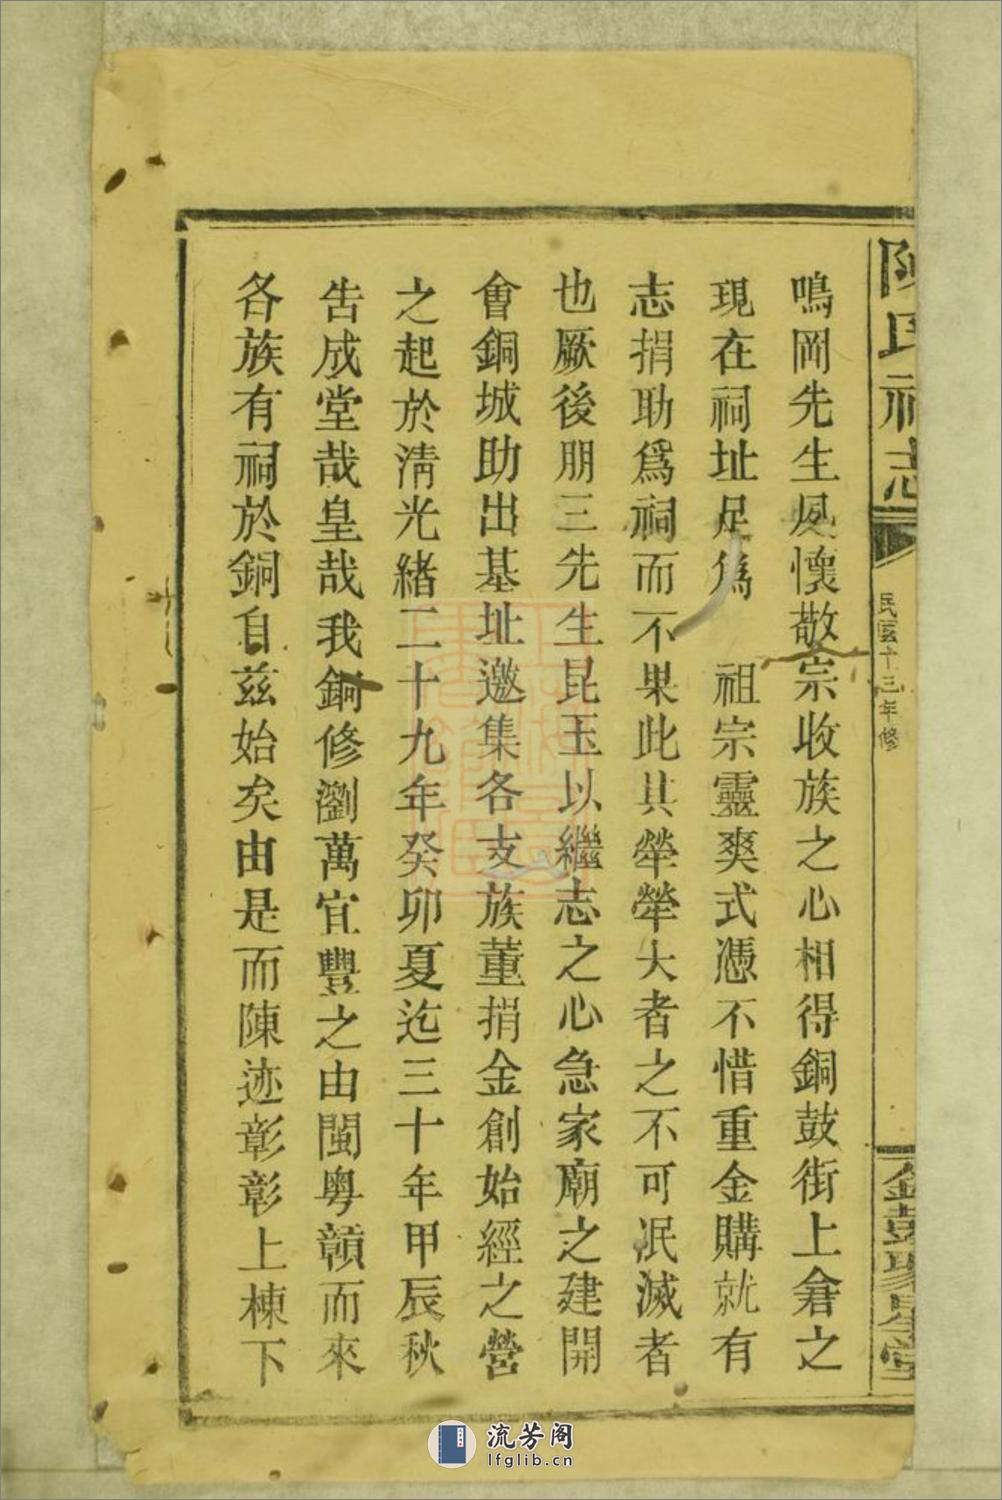 陳氏祠志
民國十三年修
堂
鳴岡先生夙懷敬宗收族之心相得銅鼓街上倉之
現在祠址足爲 祖宗靈爽式憑不惜重金購就有
志捐助爲祠而不果此其犖犖大者之不可泯滅者
也厥後朋三先生昆玉以繼志之心急家廟之建開
會銅城助出基址邀集各支族董捐金創始經之營
之起於清光緒二十九年癸卯夏迄三十年甲辰秋
告成堂哉皇哉我銅修瀏萬宜豐之由閩粤贛而來
各族有祠於銅自茲始矣由是而陳迹彰彰上棟下
流芳阁
lfglib.cn